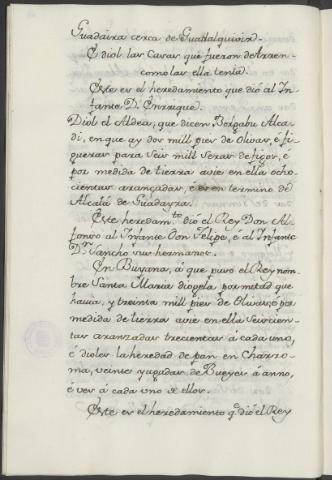 Guadaira cerca de Guadalquivir.
É diol las Casas que fueron de Arren-
como las ella tenia.
Este es el heredamiento que dió al In-
fante D. Enrrique.
Diol el Aldea, que dicen Borgabu Alca-
di, en que ay dos mill pies de Olivar, é fi-
gueras para Seis mill Seras de figos, é
por medida de tierra avie en ella ocho-
cientas aranzadas, é es en termino de
Alcalá de Guadayra.
Este heredam.to dió el Rey Don Al-
fonso al Infante don Felipe, é al Infante
D.n Sancho sus hermanos.
En Buyana, á que puso el Rey nom-
bre Santa Maria diogela por mitad que
havia, y treinta mill pies de Olivar, é por
medida de tierra avie en ella Seiscien-
tas aranzadas trecientas á cada uno,
é dioles la heredad de pan en Charro-
ma, veinte yugadas de Bueyes á año,
é ves á cada uno de ellos.
Este es el heredamiento q. dió el Rey